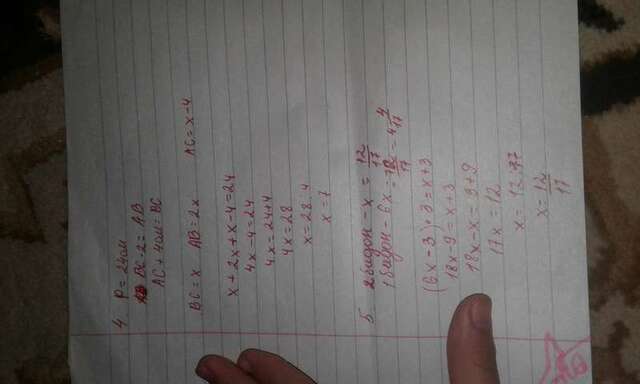 4 P=24см
BC·2=AB
AC+4см=BC
BC=x AB=2x AC=x-4
x+2x+x-4=24
4x-4=24
4x=24+4
4x=28
x=28:4
x=7
5 2 бидон - x = 12/17
1 бидон - 6x = 72/17 = 4 4/17
(6x-3)·3=x+3
18x-9=x+3
18x-x=3+9
17x=12
x=12:17
x=12/17